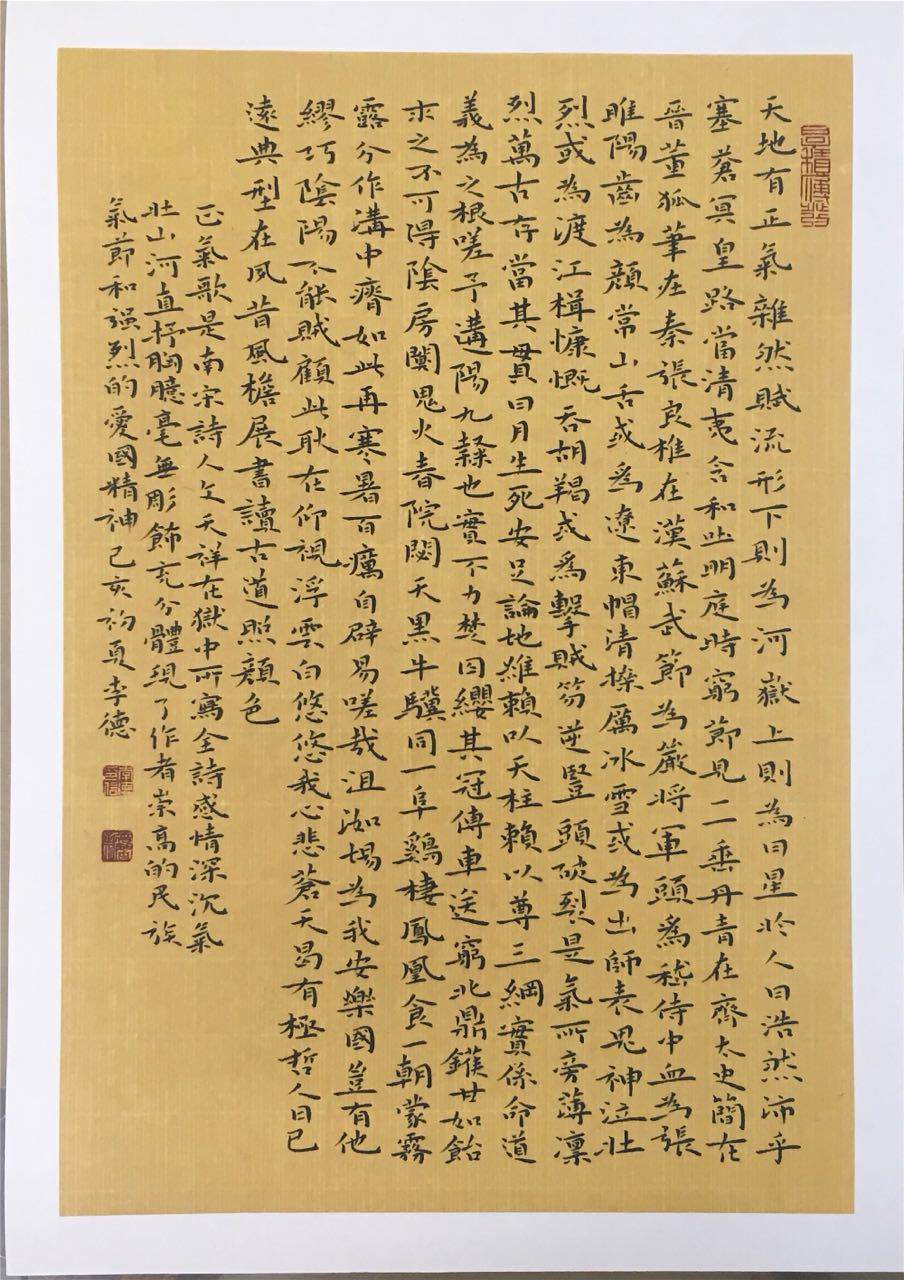 天地有正氣雜然賦流形下則為河嶽上則為日星於人曰浩然沛乎
塞蒼冥皇路當清夷含和吐明庭時窮節見一一垂丹青在齊太史簡在
晉董狐筆在秦張良椎在漢蘇武節為嚴將軍頭為嵇侍中血為張
睢陽齒為顏常山舌或為遼東帽清操厲冰雪或為出師表鬼神泣壯
烈或為渡江楫慷慨吞胡羯或為擊賊笏逆豎頭破裂是氣所旁薄凜
烈萬古存當其貫日月生死安足論地維賴以天柱賴以尊三綱實係命道
義為之根嗟予遘陽九隸也實不力楚囚纓其冠傳車送窮北鼎鑊甘如飴
求之不可得陰房闃鬼火春院閟天黑牛驥同一皁鷄棲鳳凰食一朝蒙霧
露分作溝中瘠如此再寒暑百癘自辟易嗟哉沮洳場為我安樂國豈有他
繆巧陰陽不能賊顧此耿在仰視浮雲白悠悠我心悲蒼天曷有極哲人日已
遠典型在夙昔風檐展書讀古道照顏色
正氣歌是南宋詩人文天祥在獄中所寫全詩感情深沉氣
壯山河直抒胸臆毫無彫飾充分體現了作者崇高的民族
氣節和强烈的愛國精神己亥初夏李德